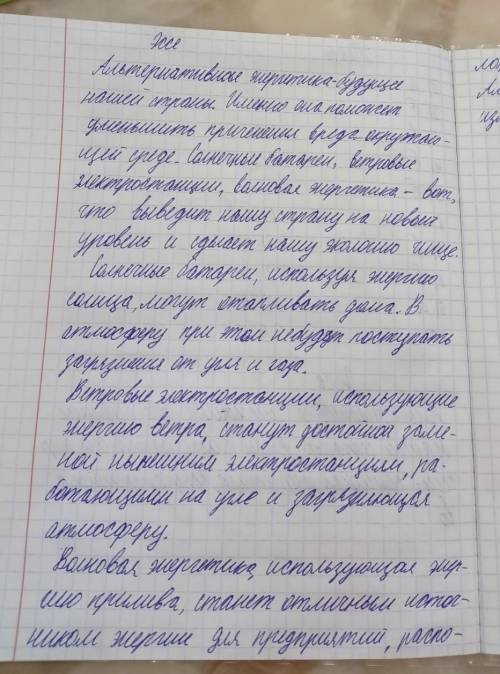 Эссе
Альтернативная энергетика-будущее
нашей страны. Именно она поможет
уменьшить причинения вреда окружаю-
щей среде. Солнечные батареи, ветровые
электростанции, волновая энергетика - вот,
что выведит нашу страну на новый
уровень и сделает нашу экологию чище.
Солнечные батареи, используя энергию
солнца, могут отапливать дома. В
атмосферу при этом небудут поступать
загрязнения от угля и газа.
Ветровые электростанции, использующие
энергию ветра, станут достойной заме-
ной нынешним электростанциям, ра-
ботающими на угле и загрязняющая
атмосферу.
Волновая энергетика, использующая энер-
гию прилива, станет отличным источ-
ником энергии для предприятий, распо-